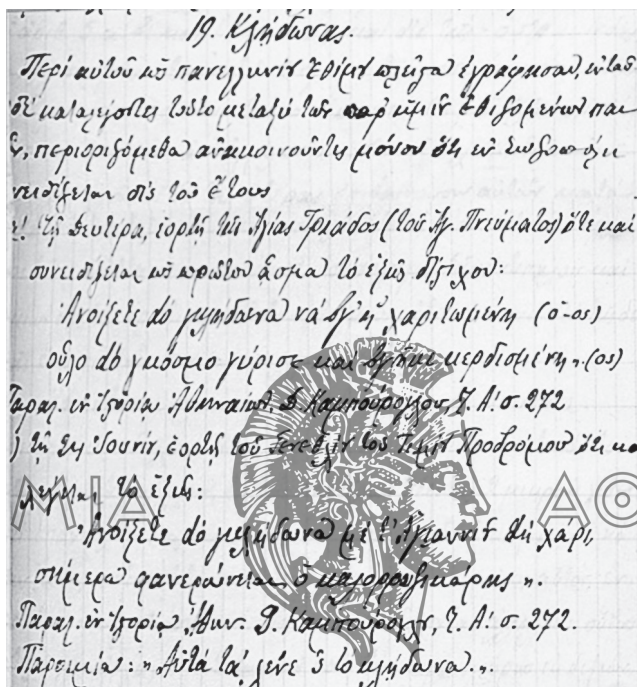 19. Κλήδωνας.
Περὶ αὐτοῦ ὡς πανελληνίου ἐθίμου πλεῖστα ἐγράφησαν,
καταλέγοντες τοῦτο μεταξὺ τῶν παρ' ἡμῖν ἐθιζομένων
περιοριζόμεθα ἀνακοινοῦντες μόνον ὅτι ἐν Σωζοπόλει
δὶς τοῦ ἔτους
τῇ Δευτέρᾳ, ἑορτῇ τῆς Ἁγίας Τριάδος (τοῦ Ἁγ. Πνεύματος) ὅτε καὶ
συνειθίζεται ὡς πρῶτον ᾆσμα τὸ ἑξῆς δίστιχον:
Ἀνοίξετε dὸ γκλήδωνα νὰ βγῆ ἡ χαριτωμένη (ὁ -ος)
οὗλο dὸ γκόσμο γύρισε καὶ βγῆκε κερδισμένη". (ος)
Παραβ. ἐν Ἱστορίᾳ Ἀθηναίων, Δ. Καμπούρογλου, Τ. Α' σ. 272
τῇ 24 Ἰουνίου, ἑορτῇ τοῦ Γενεθλίου τοῦ Τιμίου Προδρόμου ὅτε
λέγεται τὸ ἑξῆς:
"Ἀνοίξετε dὸ γκλήδωνα μὲ τ' Ἁγιαννιοῦ dὴ χάρι,
σήμερα φανερώνεται ὁ καλορροιζικάρης".
Παραβ. ἐν Ἱστορίᾳ Ἀθην. Δ. Καμπούρογλου, Τ. Α' σ. 272.
Παροιμία: "Αὐτὰ τὰ λένε 'ς τὸ κλήδωνα."
ΜΙΑ ΑΘ